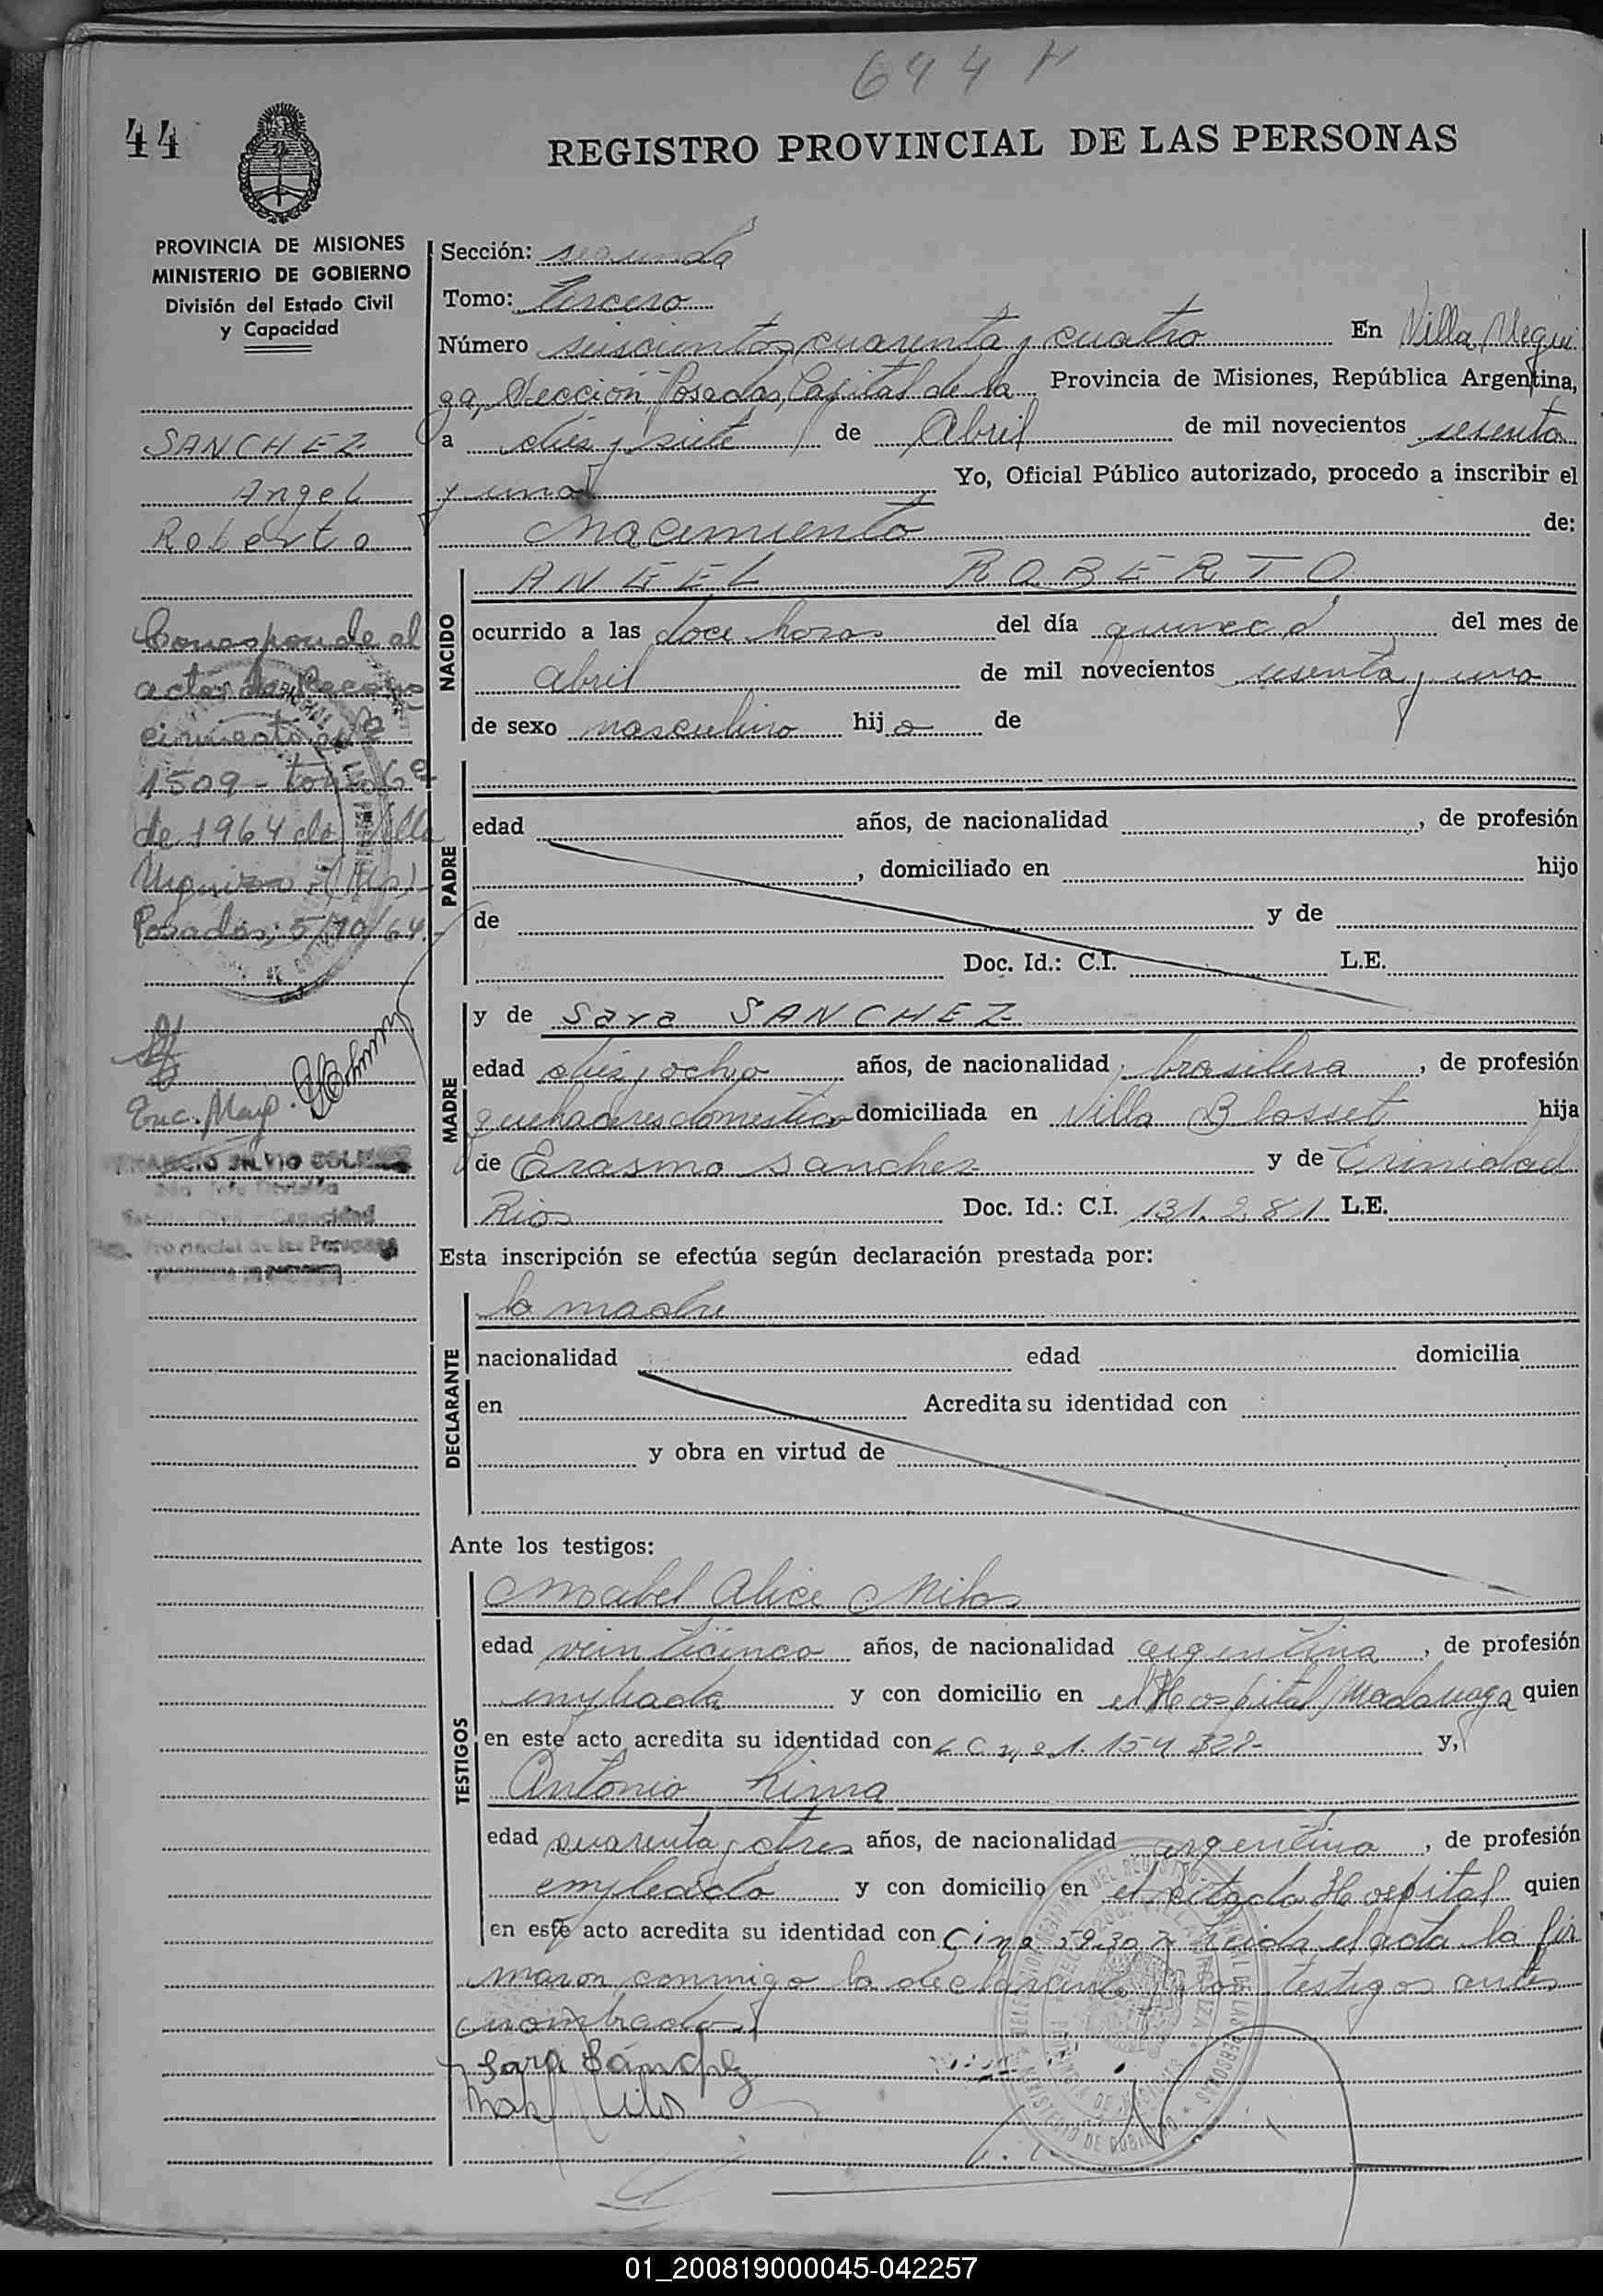 644
44
REGISTRO PROVINCIAL DE LAS PERSONAS
PROVINCIA DE MISIONES
MINISTERIO DE GOBIERNO
División del Estado Civil
y Capacidad
SANCHEZ
Angel
Roberto
Corresponde al
acta de Recono
cimiento nº
1509 - tomo 6º
de 1964 de Villa
Urquiza - (Mis)
Posadas, 5/10/64.-
Enc. Mayo.
SILVIO
División
Capacidad
Provincial de las Personas
Sección: segunda
Tomo: tercero
Número seiscientos cuarenta y cuatro En Villa Urqui
za, Sección Posadas, Capital de la Provincia de Misiones, República Argentina,
a dies y siete de Abril de mil novecientos sesenta
y uno Yo, Oficial Público autorizado, procedo a inscribir el
Nacimiento de:
NACIDO
ANGEL ROBERTO
ocurrido a las doce horas del día quince del mes de
Abril de mil novecientos sesenta y uno
de sexo masculino hijo de
PADRE
edad años, de nacionalidad , de profesión
, domiciliado en hijo
de y de
Doc. Id.: C.I. L.E.
MADRE
y de Sara SANCHEZ
edad dies y ocho años, de nacionalidad brasilera , de profesión
quehaceres domestico domiciliada en Villa Blosset hija
de Erasmo Sanchez y de Trinidad
Rios Doc. Id.: C.I. 131.281 L.E.
Esta inscripción se efectúa según declaración prestada por:
DECLARANTE
la madre
nacionalidad edad domicilia
en Acredita su identidad con
y obra en virtud de
Ante los testigos:
TESTIGOS
Mabel Alice Milos
edad veinticinco años, de nacionalidad argentina , de profesión
empleada y con domicilio en el Hospital Madariaga quien
en este acto acredita su identidad con L C nº 1.154.328- y,
Antonio Lima
edad cuarenta y tres años, de nacionalidad argentina , de profesión
empleado y con domicilio en el citado Hospital quien
en este acto acredita su identidad con Leida el acta la fir
maron conmigo la declarante y los testigos antes
nombrados
Sara Sánchez
Milos
01_200819000045-042257